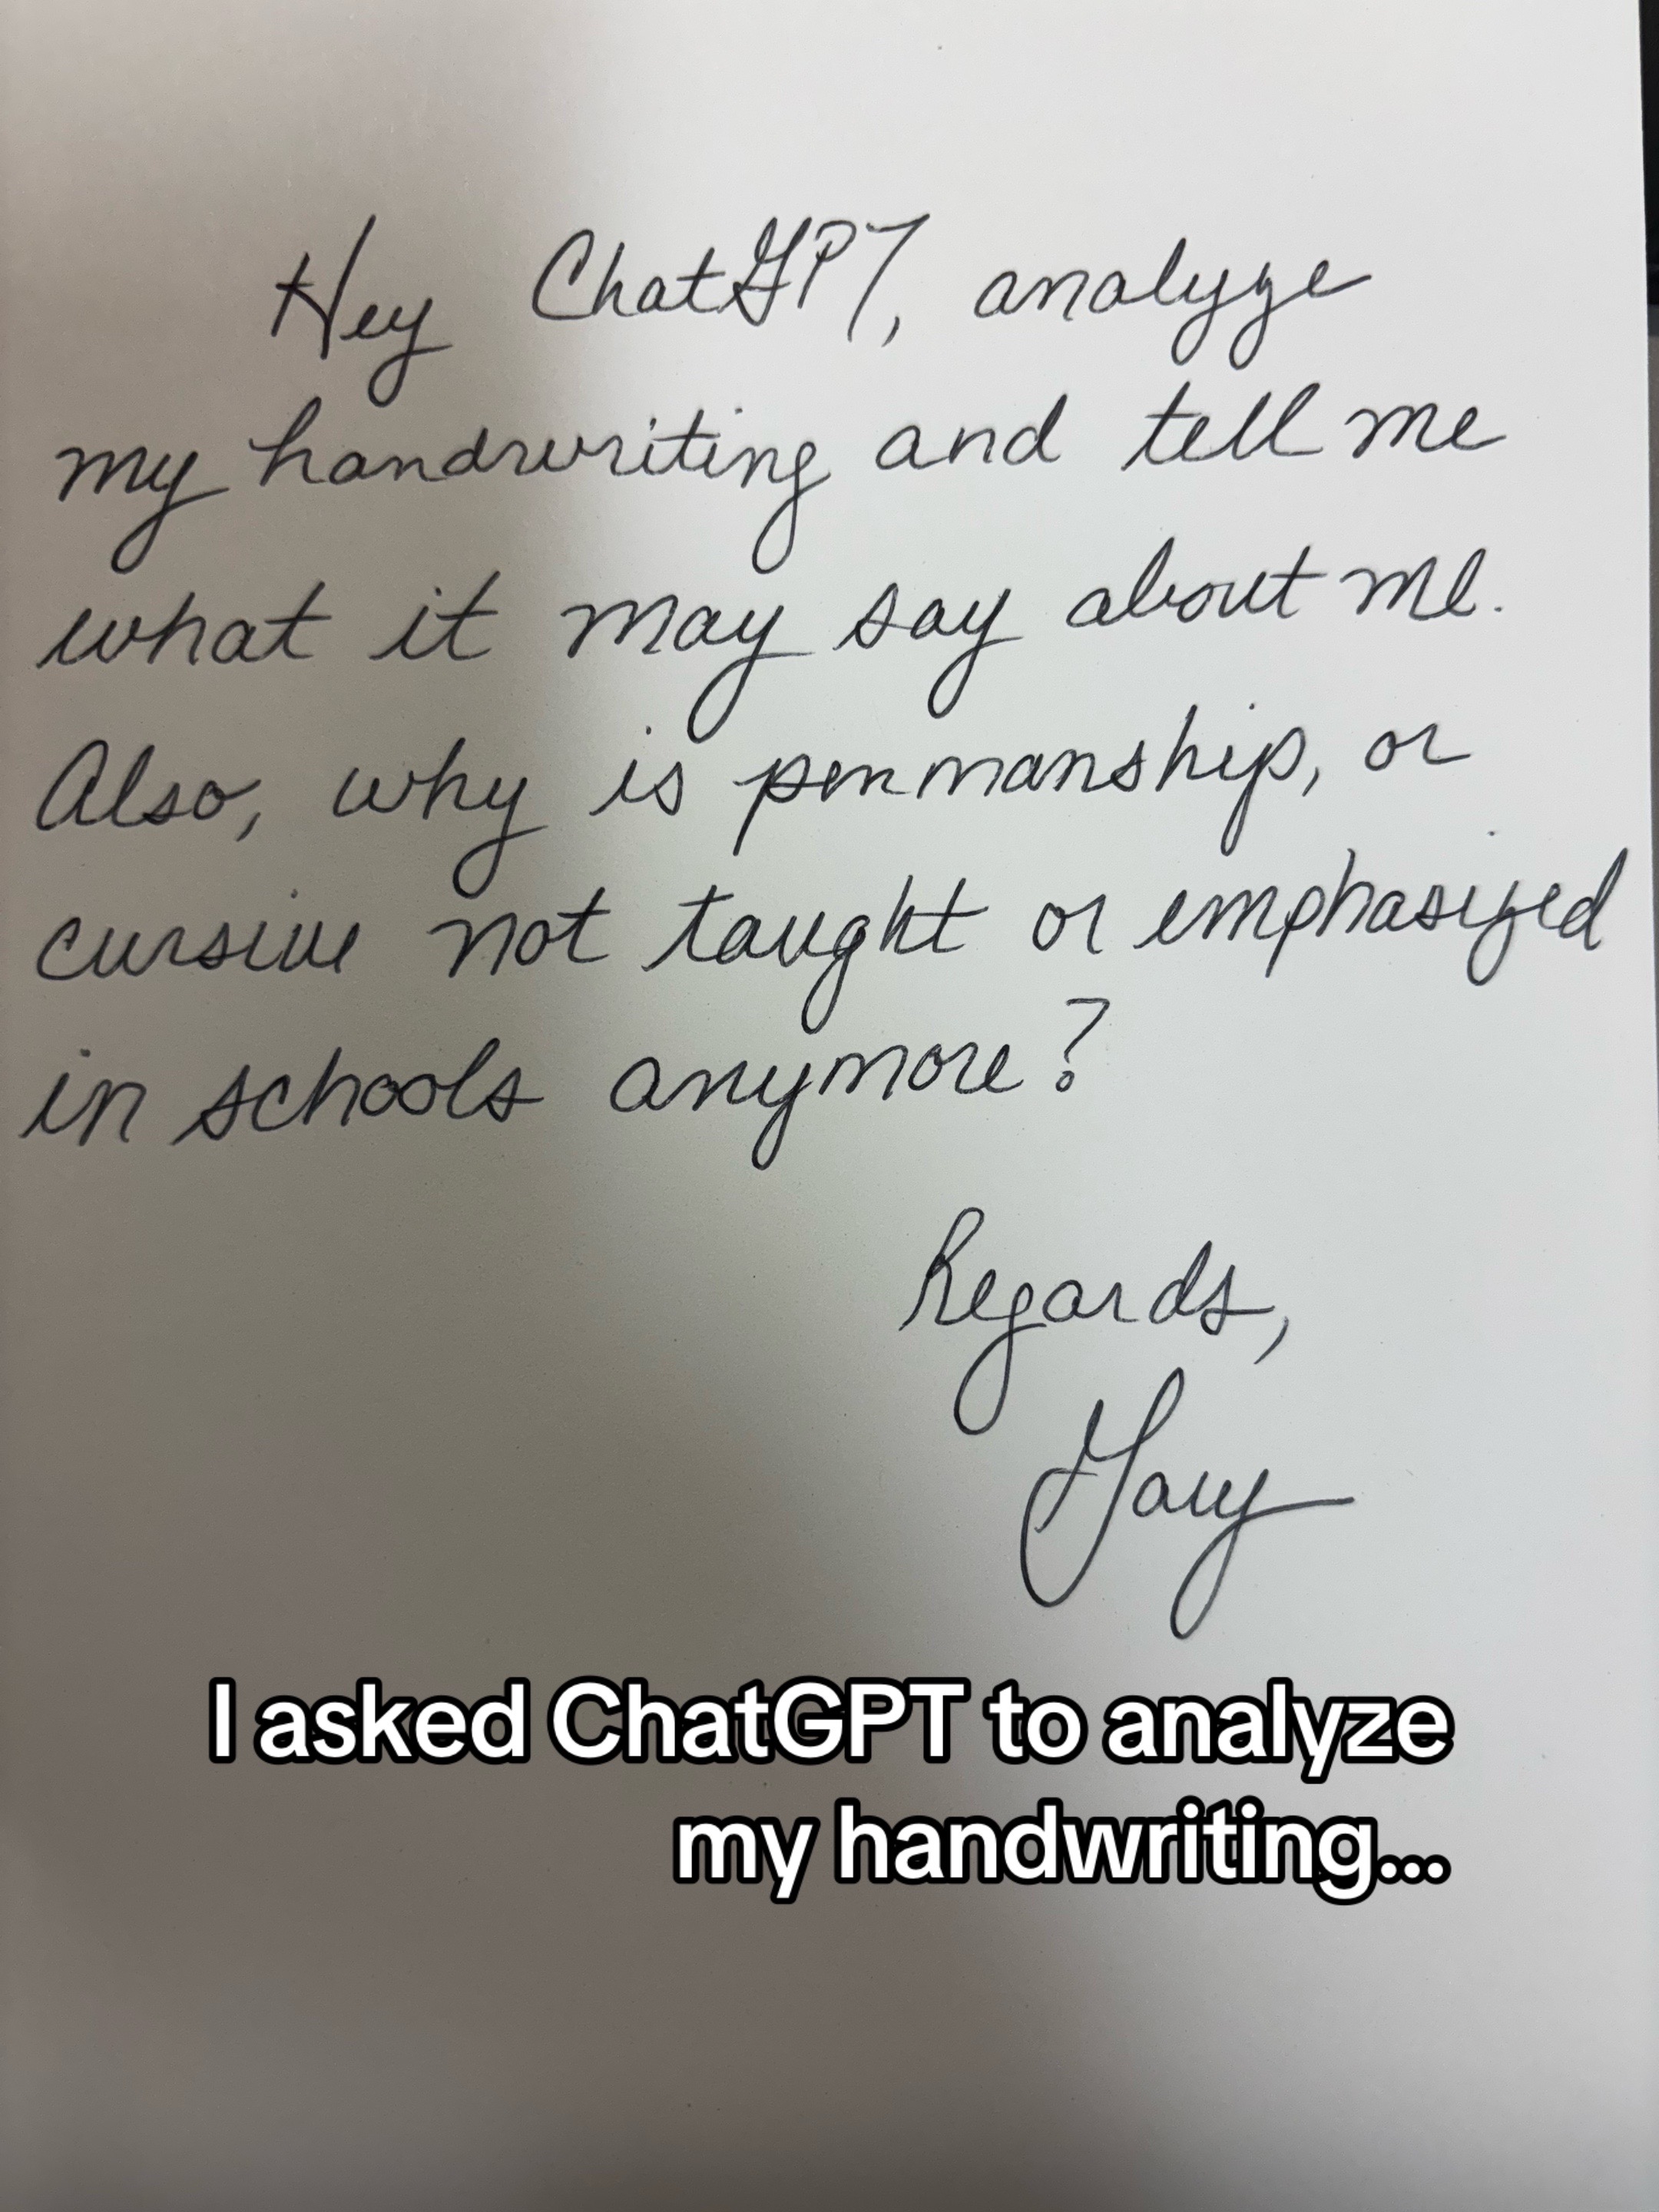 Hey ChatGPT, analyze
my handwriting and tell me
what it may say about me.
Also, why is penmanship, or
cursive not taught or emphasized
in schools anymore?
Regards,
Gary
I asked ChatGPT to analyze
my handwriting...